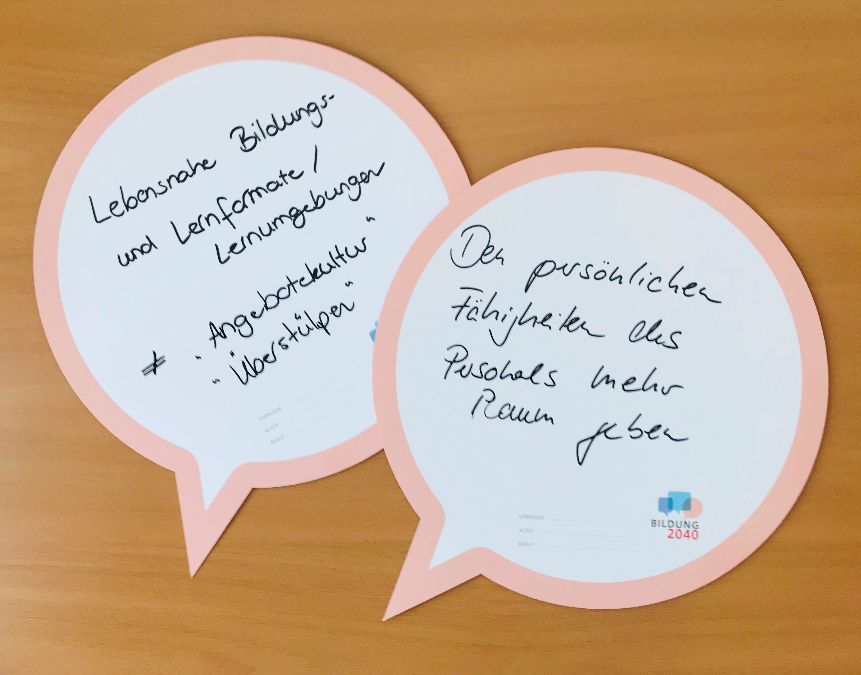 Lebensnahe Bildungs-
und Lernformate /
Lernumgebungen
≠ "Angebotskultur"
"Überstülpen"
VORNAME:
ALTER:
BERUF:
Den persönlichen
Fähigkeiten des
Personals mehr
Raum geben
VORNAME:
ALTER:
BERUF:
BILDUNG
2040